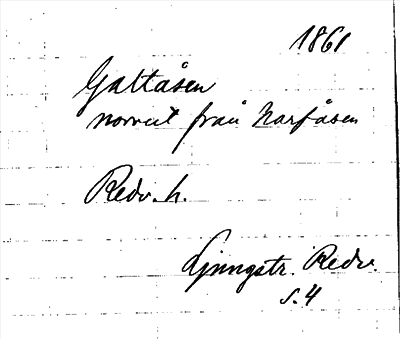 1861
Galtåsen
norrut från Narfåsen
Redv. h.
Ljungstr. Redv.
s. 4